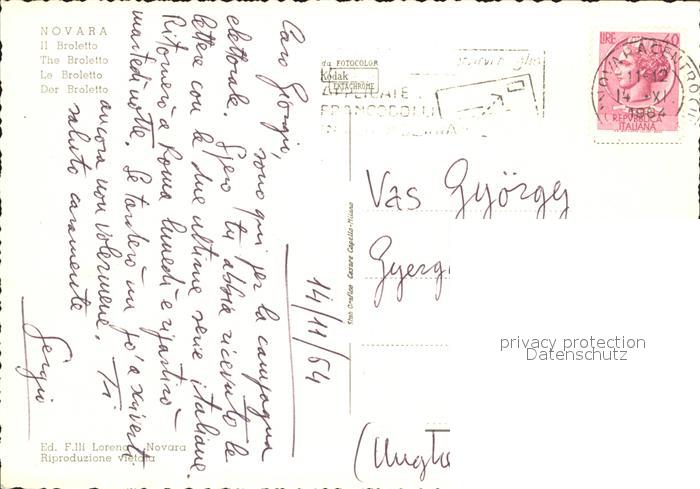 NOVARA
Il Broletto
The Broletto
Le Broletto
Der Broletto
da FOTOCOLOR
Kodak
EKTACHROME
APPLICATE
FRANCOBOLLI
LIRE 40
NOVARA CENTRO
11-12
14 · XI
1964
REPVBBLICA
ITALIANA
14/11/64
Caro Giorgio,
sono qui per la campagna
elettorale. Spero tu abbia ricevuto le
lettere con le due ultime serie italiane.
Ritornerò a Roma lunedì e ripartirò
martedì notte. Se tarderò un po' a scriverti
ancora non volermene. Ti
saluto caramente
Sergio
Stab. Grafico Cesare Capello - Milano
Vas György
Gyerg
(Ungh
privacy protection
Datenschutz
Ed. F.lli Lorena - Novara
Riproduzione vietata